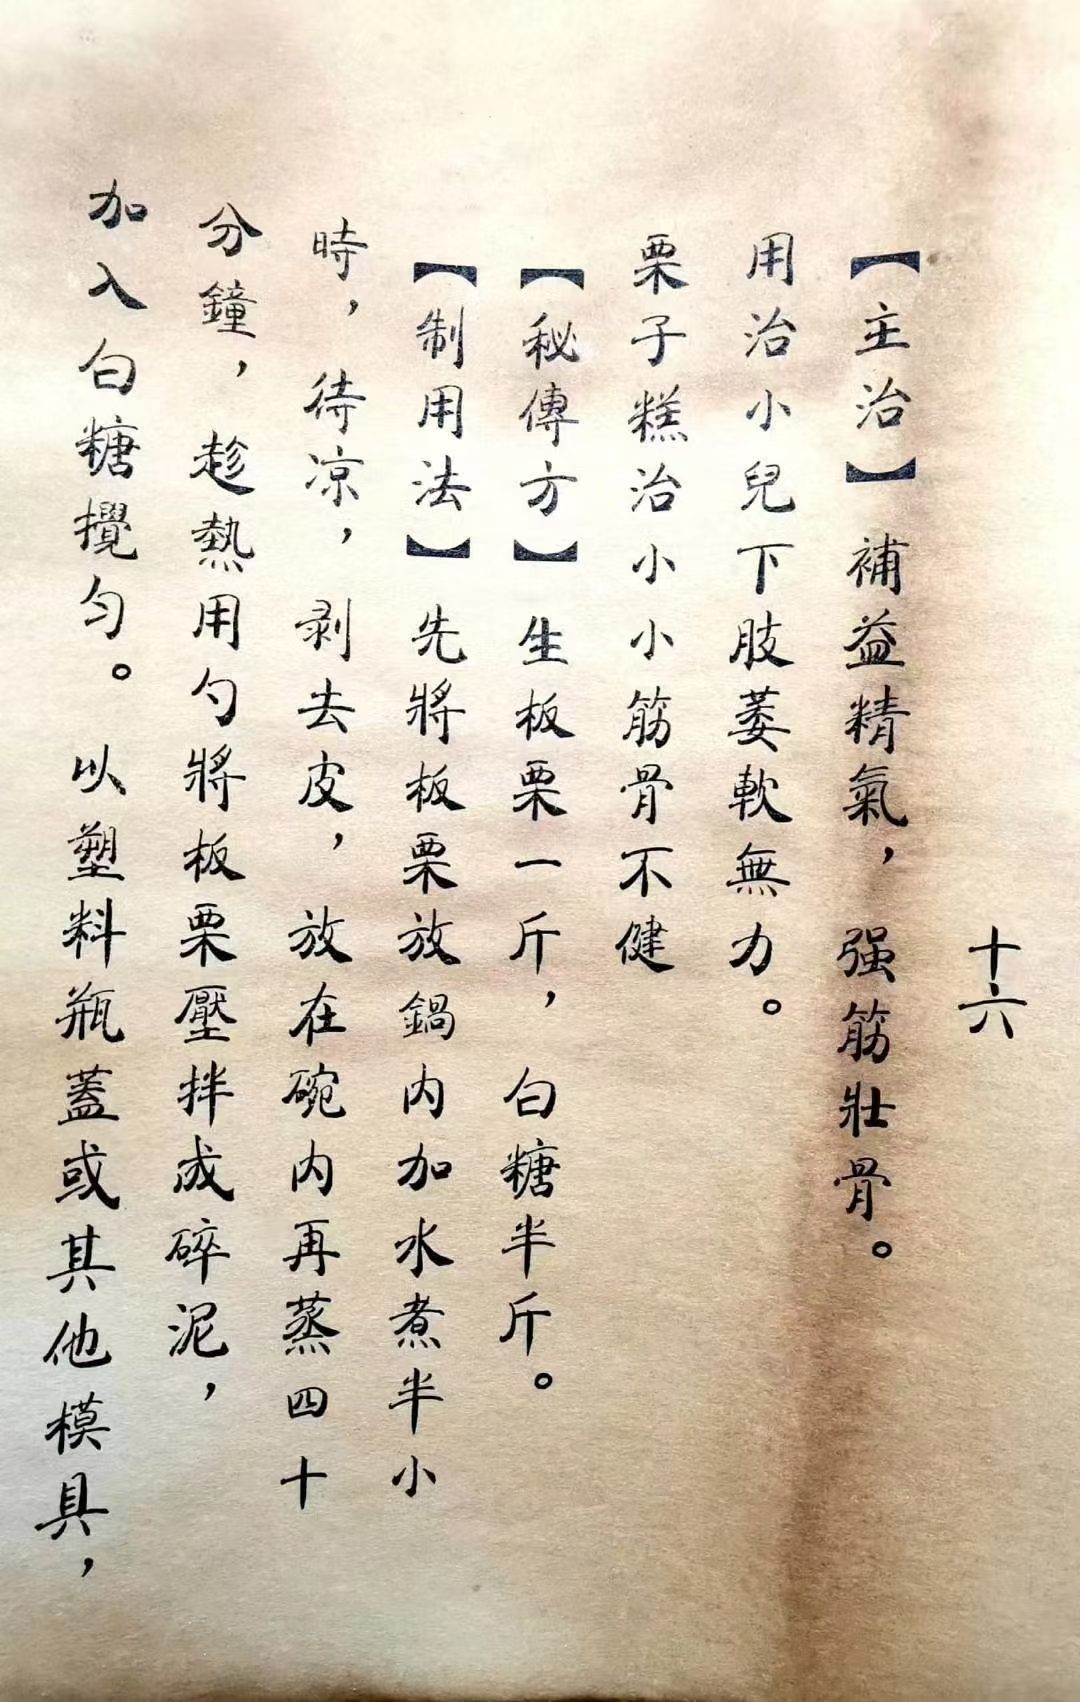 十六
【主治】補益精氣，强筋壯骨。
用治小兒下肢萎軟無力。
栗子糕治小小筋骨不健
【秘傳方】生板栗一斤，白糖半斤。
【制用法】先將板栗放鍋内加水煮半小
時，待凉，剥去皮，放在碗内再蒸四十
分鐘，趁熱用勺將板栗壓拌成碎泥，
加入白糖攪匀。以塑料瓶蓋或其他模具，